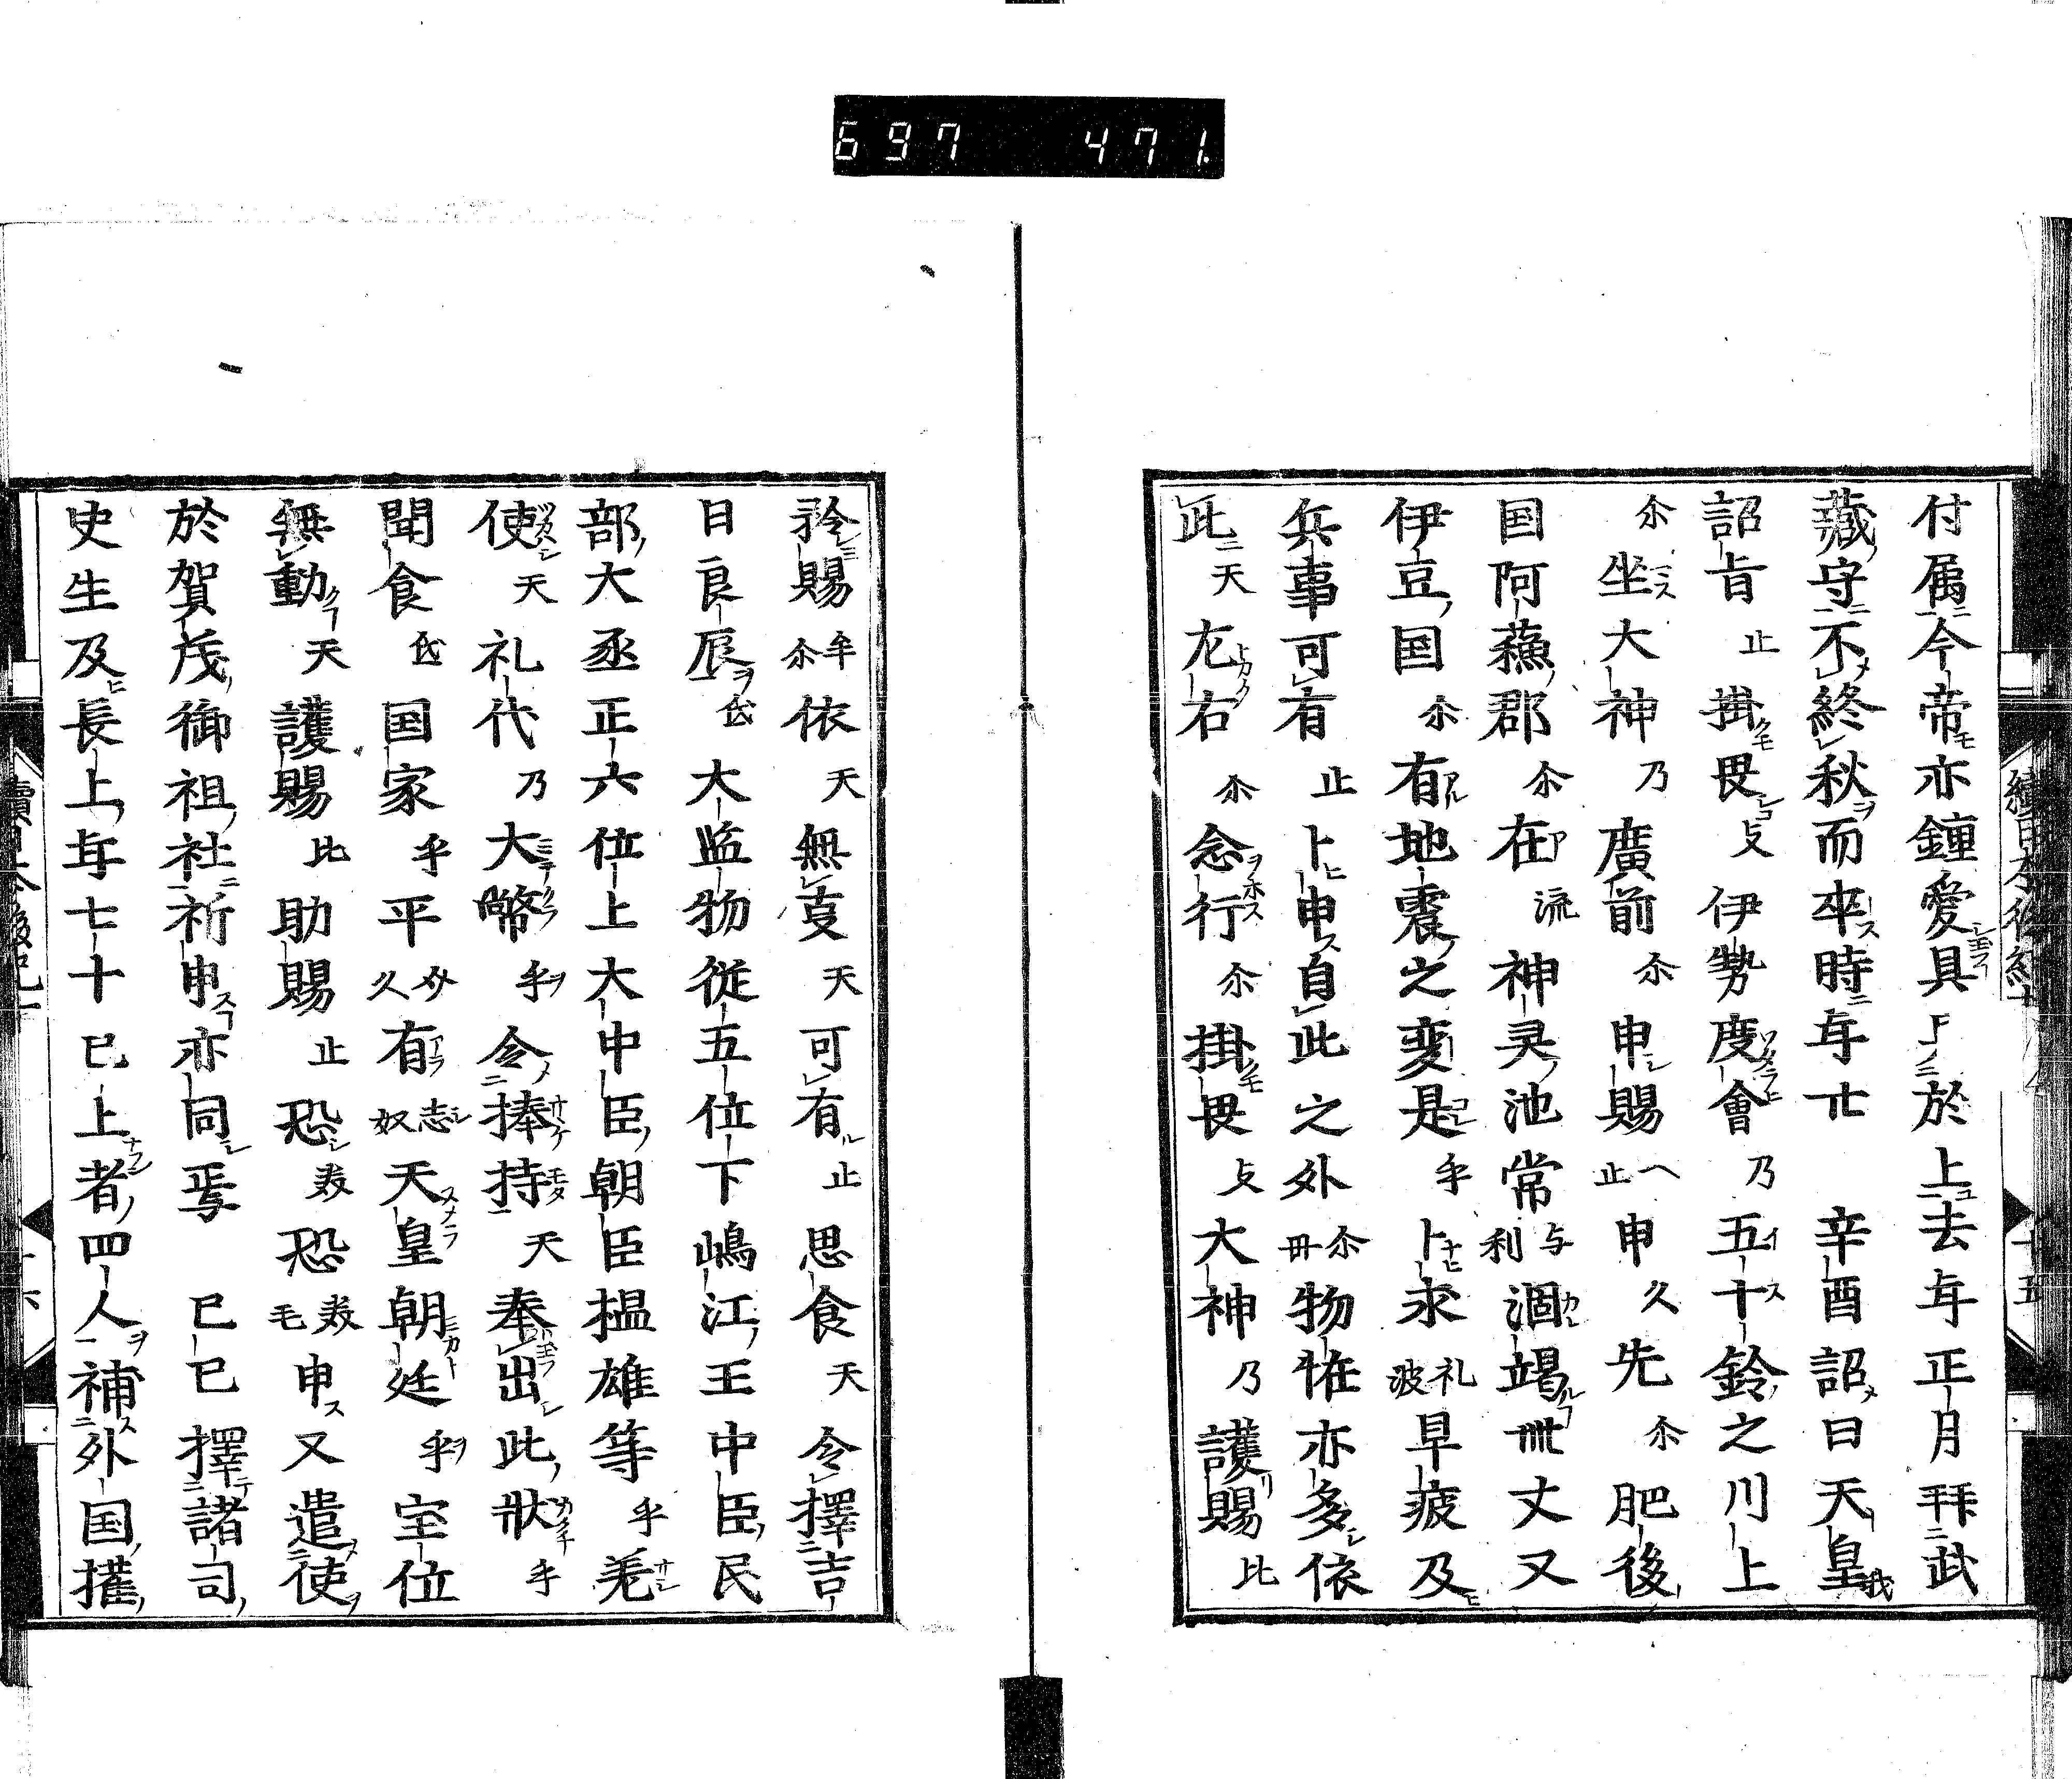 697 471.
付属今帝亦鍾愛具於上去年正月拜武
蔵守不終秋而卒時年廿 辛酉詔曰天皇我
詔旨止掛畏支伊勢度會乃五十鈴之川上
尒坐大神乃廣前尒申賜へ止申久先尒肥後
国阿蘓郡尒在流神灵池常与利涸竭卌丈又
伊豆国尒有地震之変是乎卜求礼波旱疲及
兵事可有止卜申自此之外尒毌物恠亦多依
此天左右尒念行尒掛畏支大神乃護賜比
矜賜牟尒依天無㕝天可有止思食天令擇吉
日良辰氐大监物従五位下嶋江王中臣民
部大丞正六位上大中臣朝臣揾雄等乎差
使天礼代乃大幣乎令捧持天奉出此状乎
聞食氐国家乎平久有志奴天皇朝廷乎宝位
無動天護賜比助賜止恐美恐美毛申又遣使
於賀茂御祖社祈申亦同焉 己巳擇諸司
史生及長上年七十已上者四人補外国権